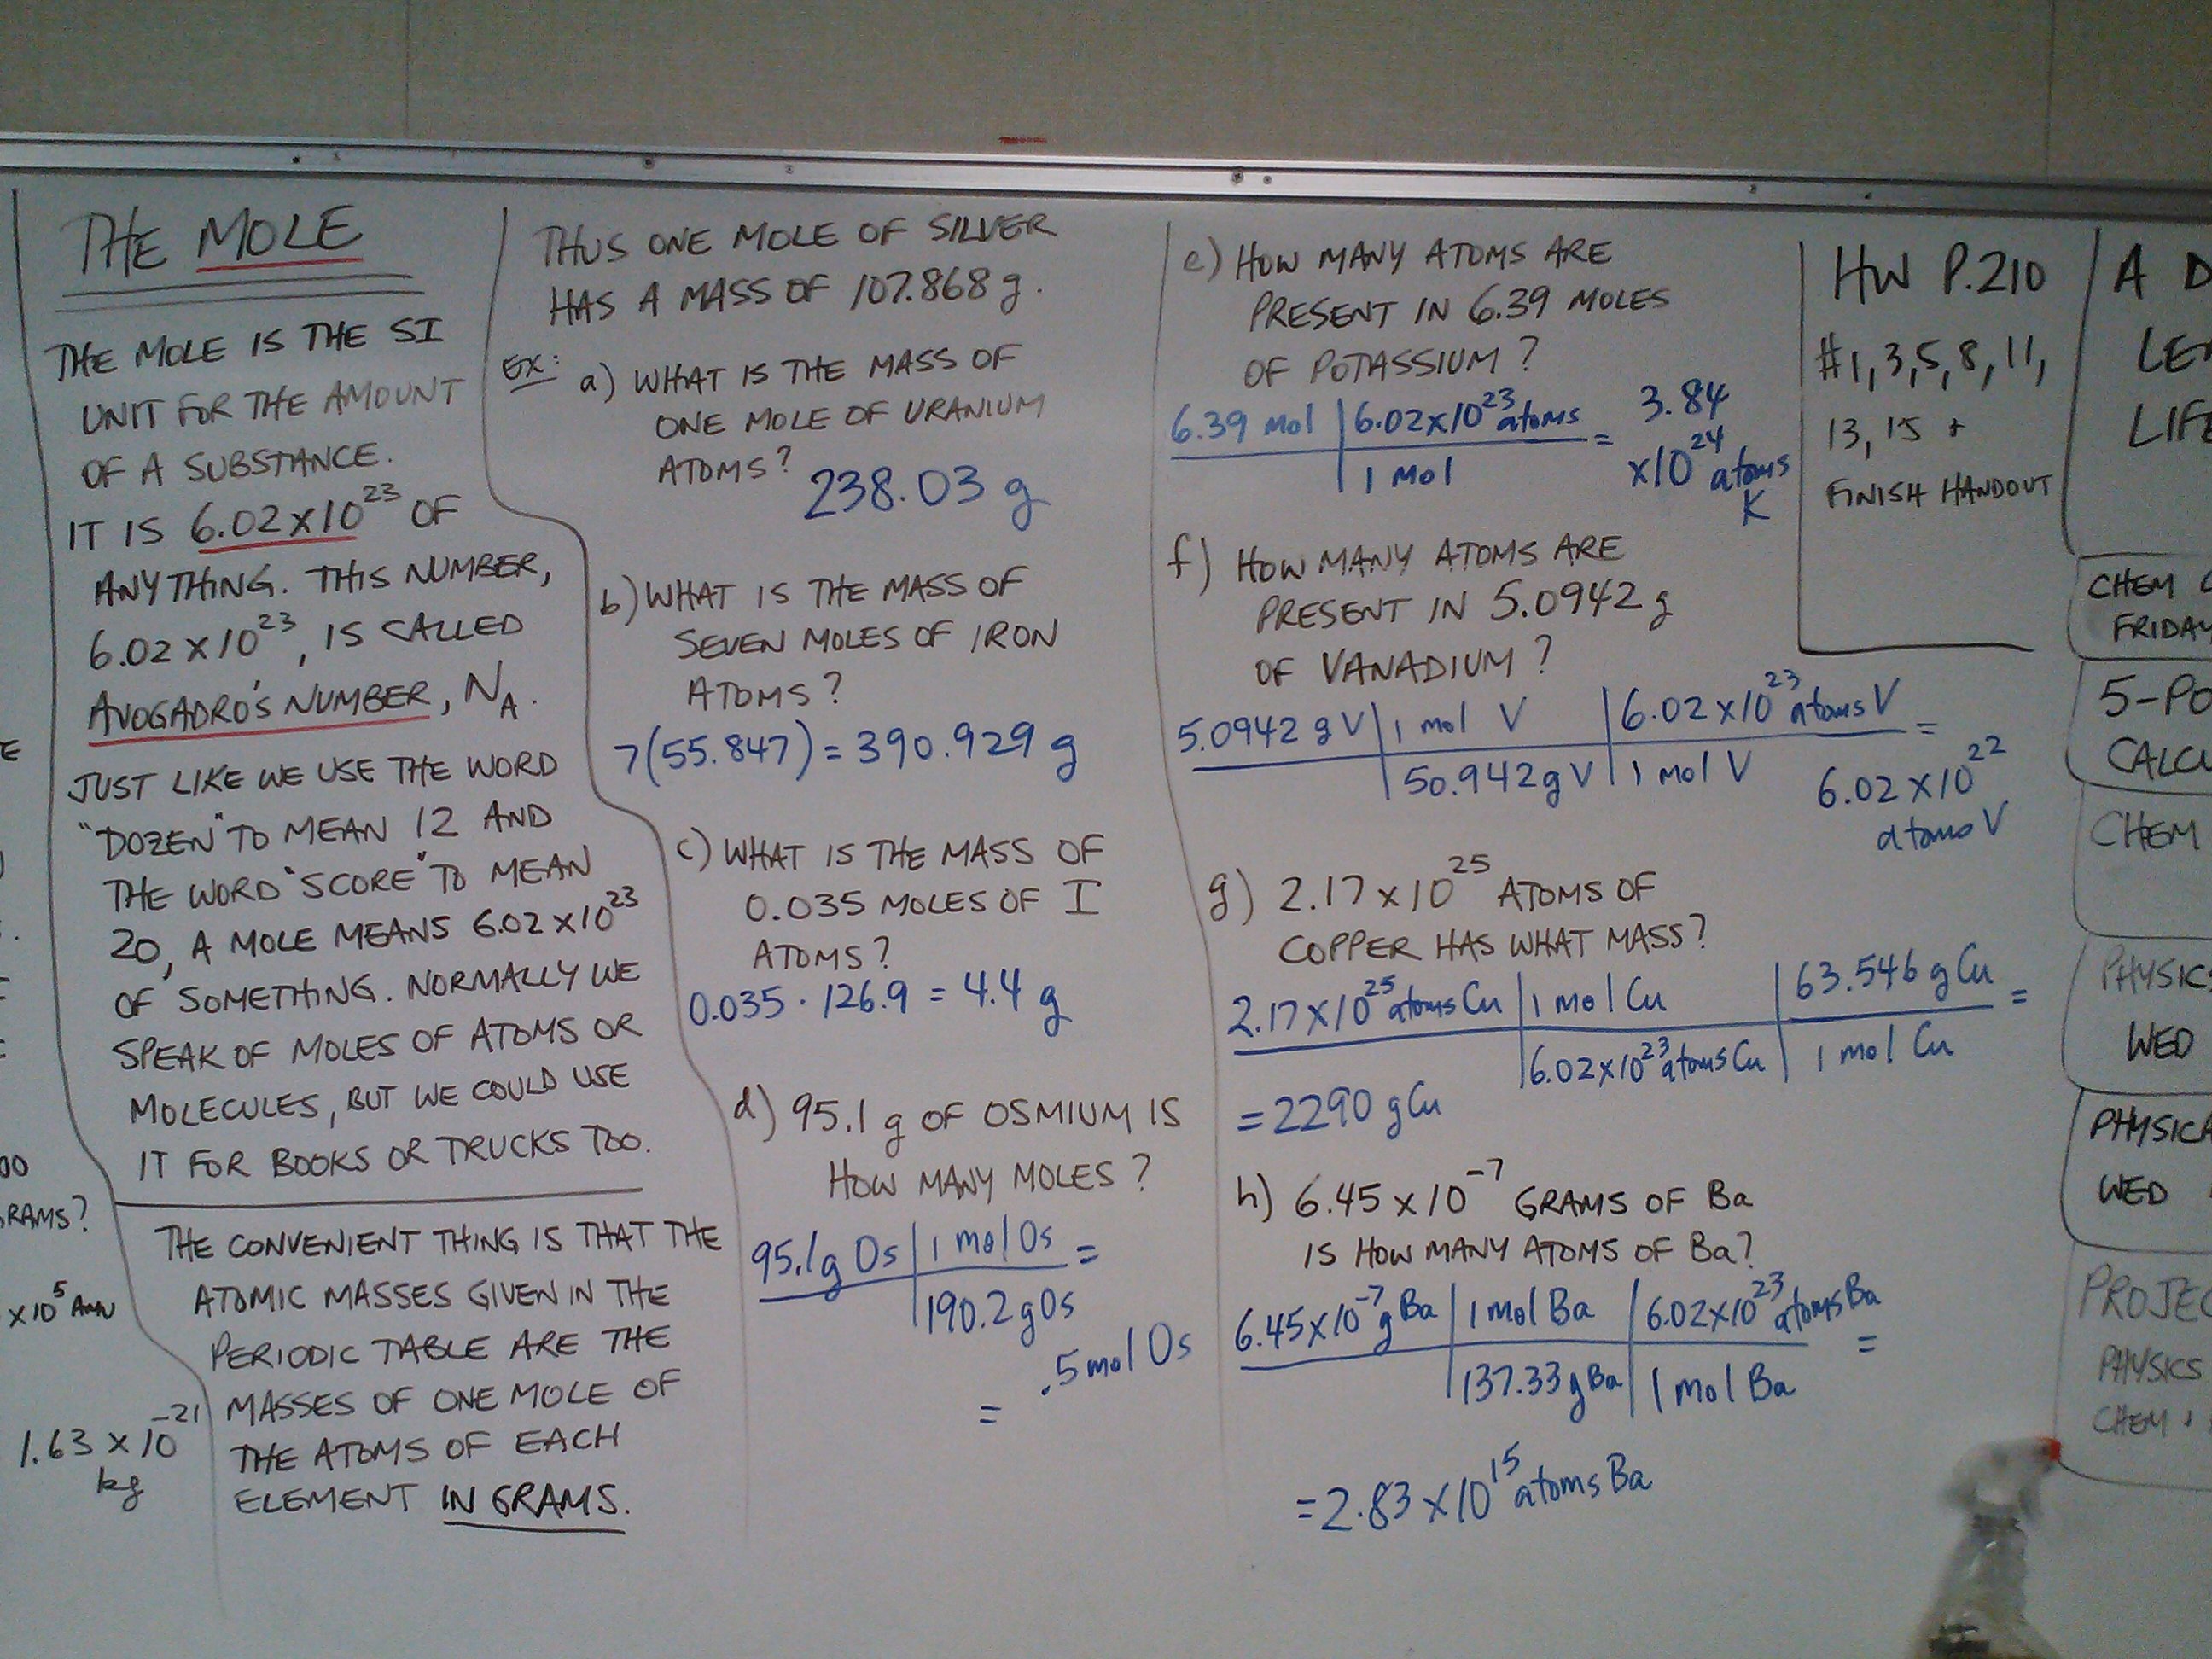 E
00
GRAMS?
x10⁵ AMU
1.63 x 10⁻²¹
kg
THE MOLE
THE MOLE IS THE SI
UNIT FOR THE AMOUNT
OF A SUBSTANCE.
IT IS 6.02x10²³ OF
ANYTHING. THIS NUMBER,
6.02 x 10²³, IS CALLED
AVOGADRO'S NUMBER, N_A.
JUST LIKE WE USE THE WORD
"DOZEN" TO MEAN 12 AND
THE WORD "SCORE" TO MEAN
20, A MOLE MEANS 6.02 x10²³
OF SOMETHING. NORMALLY WE
SPEAK OF MOLES OF ATOMS OR
MOLECULES, BUT WE COULD USE
IT FOR BOOKS OR TRUCKS TOO.
THE CONVENIENT THING IS THAT THE
ATOMIC MASSES GIVEN IN THE
PERIODIC TABLE ARE THE
MASSES OF ONE MOLE OF
THE ATOMS OF EACH
ELEMENT IN GRAMS.
THUS ONE MOLE OF SILVER
HAS A MASS OF 107.868 g.
EX: a) WHAT IS THE MASS OF
ONE MOLE OF URANIUM
ATOMS?
238.03 g
b) WHAT IS THE MASS OF
SEVEN MOLES OF IRON
ATOMS?
7(55.847) = 390.929 g
c) WHAT IS THE MASS OF
0.035 MOLES OF I
ATOMS?
0.035 · 126.9 = 4.4 g
d) 95.1 g OF OSMIUM IS
HOW MANY MOLES?
95.1g Os | 1 mol Os =
190.2 g Os
= .5 mol Os
e) HOW MANY ATOMS ARE
PRESENT IN 6.39 MOLES
OF POTASSIUM?
6.39 mol | 6.02x10²³ atoms = 3.84
1 mol x10²⁴ atoms
K
f) HOW MANY ATOMS ARE
PRESENT IN 5.0942 g
OF VANADIUM?
5.0942 g V | 1 mol V | 6.02 x10²³ atoms V =
50.942 g V | 1 mol V
6.02 x10²²
atoms V
g) 2.17 x 10²⁵ ATOMS OF
COPPER HAS WHAT MASS?
2.17 x10²⁵ atoms Cu | 1 mol Cu | 63.546 g Cu =
6.02x10²³ atoms Cu | 1 mol Cu
= 2290 g Cu
h) 6.45 x 10⁻⁷ GRAMS OF Ba
IS HOW MANY ATOMS OF Ba?
6.45x10⁻⁷ g Ba | 1 mol Ba | 6.02x10²³ atoms Ba =
137.33 g Ba | 1 mol Ba
= 2.83 x10¹⁵ atoms Ba
HW P.210
#1, 3, 5, 8, 11,
13, 15 +
FINISH HANDOUT
A D
LE
LIFE
CHEM
FRIDAY
5-PO
CALCU
CHEM
PHYSICS
WED
PHYSICA
WED
PROJEC
PHYSICS
CHEM +